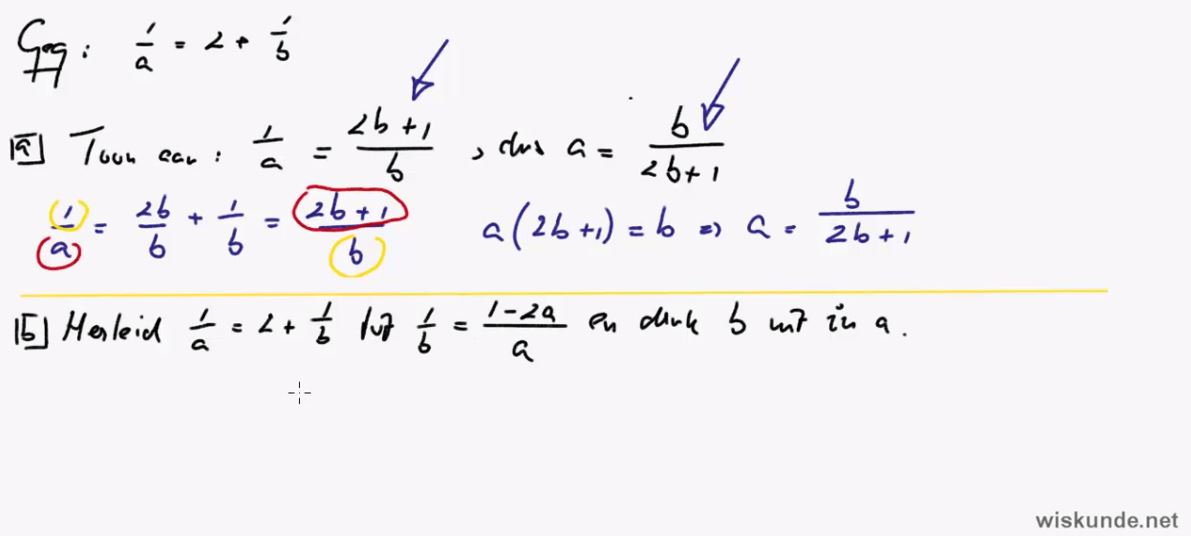 Geg: 1/a = 2 + 1/b
[a] Toon aan: 1/a = (2b+1)/b, dus a = b/(2b+1)
1/a = 2b/b + 1/b = (2b+1)/b a(2b+1) = b ⇒ a = b/(2b+1)
[b] Herleid 1/a = 2 + 1/b tot 1/b = (1-2a)/a en druk b uit in a.
wiskunde.net